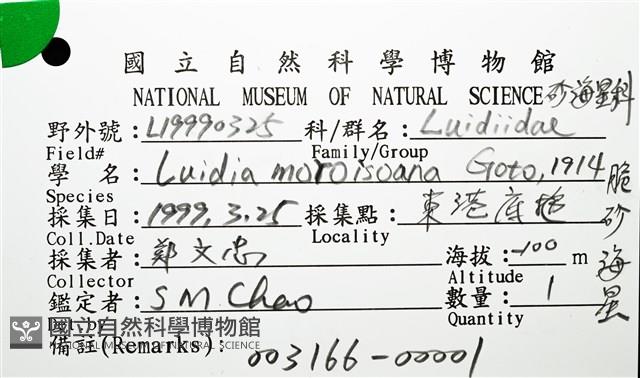 國立自然科學博物館
NATIONAL MUSEUM OF NATURAL SCIENCE 砂海星科
野外號：L19990325 科/群名：Luidiidae
Field# Family/Group
學 名：Luidia moroisoana Goto, 1914 脆砂海星
Species
採集日：1999, 3.25 採集點：東港底拖
Coll.Date Locality
採集者：鄭文忠 海拔：-100 m
Collector Altitude
鑑定者：S M Chao 數量：1
Quantity
國立自然科學博物館
NATIONAL MUSEUM OF NATURAL SCIENCE
備註(Remarks)：003166-00001